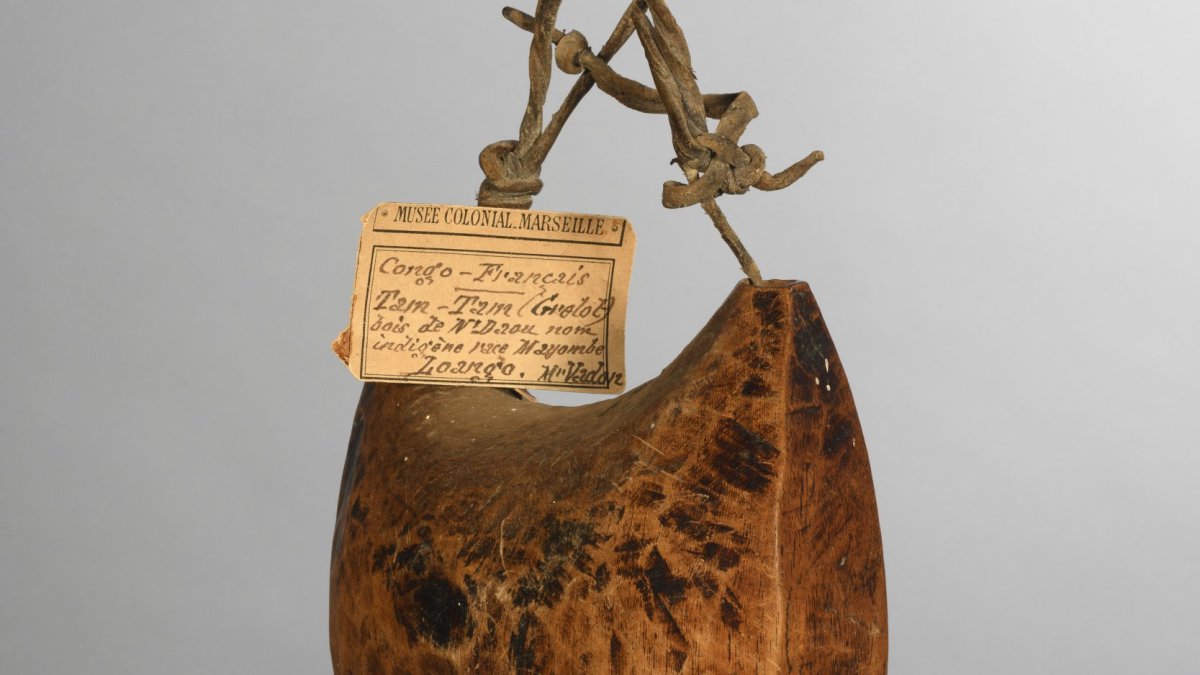 MUSÉE COLONIAL.MARSEILLE
Congo-Français
Tam-Tam (Grelot)
bois de N'Daou nom
indigène race Mayombe
Loango. Mon Vadon